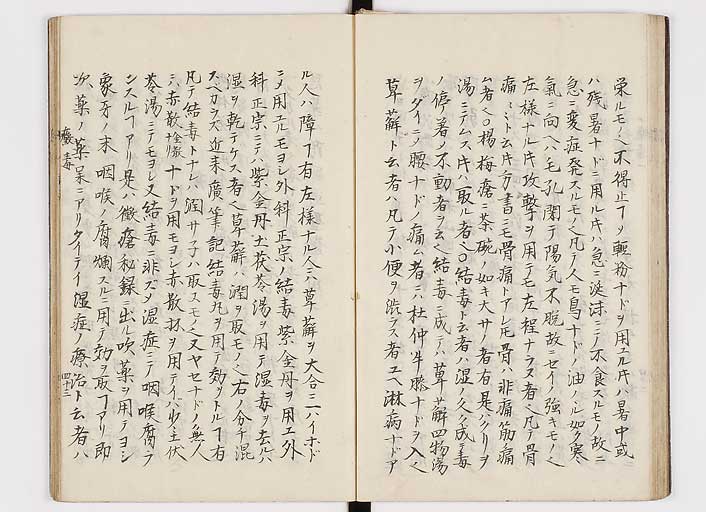 栄ルモノ也不得止ヿヲ軽粉ナドヲ用ユル片ハ暑中或
ハ残暑ナドニ用ル片ハ急ニ涎沫ニノ不食スルモノ故ニ
急ニ変症発スルモノ也凡テ人モ鳥ナドノ油ノ如ク寒
氣ニ向ヘハ毛孔閉テ陽氣不脱故ニセイノ強キモノ也
左様ナル片攻撃ヲ用テモ左程ナラヌ者也凡テ骨
痛ミト云片方書ニモ骨痛トアレ𪜈骨ハ非痛筋痛
ム者也〇楊梅瘡ニ茶碗ノ如キ大サノ者有是ハクリヲ
湯ニテムス片ハ取ル者也〇結毒ト云者ハ湿ノ久ク成毒
ノ停着ノ不動者ヲ云也結毒ニ成テハ萆薢四物湯
ヲダイニノ腰ナドノ痛ム者ニハ杜仲牛膝ナドヲ入ベ
萆薢ト云者ハ凡テ小便ヲ渋ラス者ユヘ淋病ナドア
ル人ハ障ヿ有左様ナル人ニハ萆薢ヲ大合ニハイホド
ニノ用ユルモヨシ外科正宗ノ結毒紫金丹ヲ用ユ外
科正宗ニテハ紫金丹土茯苓湯ヲ用テ湿毒ヲ去ルハ
湿ヲ乾テケス者也萆薢ハ潤ヲ取モノ也右ノ分チ混
スベカラズ近来廣筆記結毒丸ヲ用テ効ヲトルヿ有
凡テ結毒トナレハ潤サ子ハ取スモノ又ヤセナドノ無人
ニハ赤散ナドヲ用モヨシ赤散抔ヲ用テイハル土伏
苓湯ニテノモヨシ又結毒ニ非ズノ湿症ニテ咽喉腐ラ
ンスルヿアリ是ハ黴瘡秘録ニ出ル吹薬ヲ用テヨシ
象牙ノ末咽喉ノ腐爛スルニ用テ効ヲ取ヿアリ即
次薬ノ薬呆ニアリタイテイ湿症ノ療治ト云者ハ
黴毒
四十二